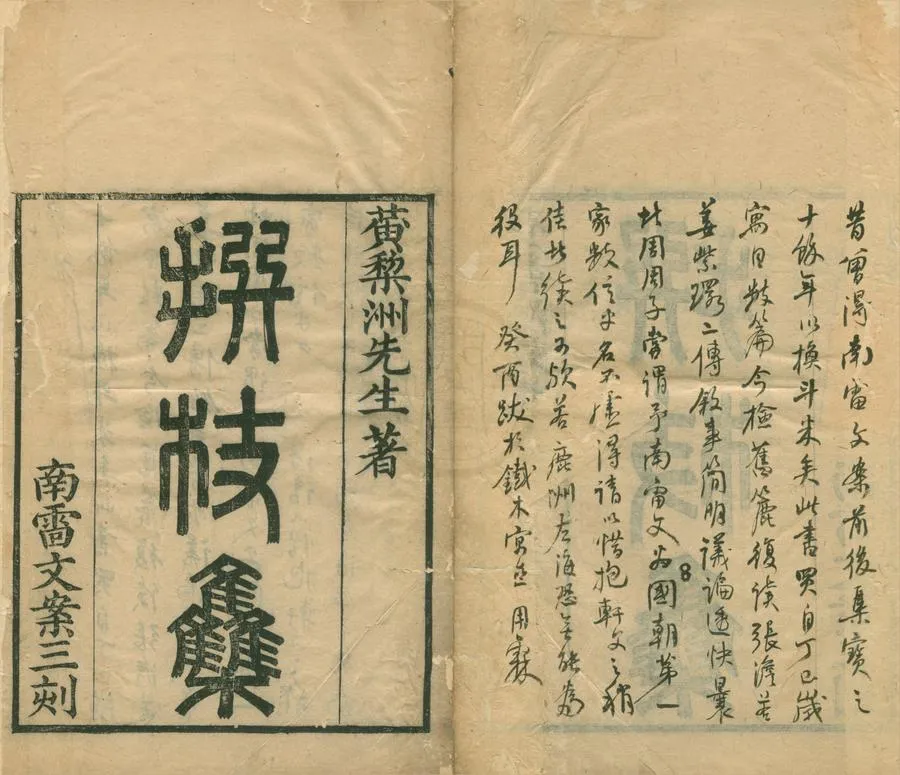 昔曾得南雷文案前後集寶之
十餘年以換斗米矣此書買自丁巳歲
寓目數篇今檢舊簏復讀張澹若
姜紫環二傳敘事簡明議論透快曩
周周子嘗謂予南雷文為國朝第一
家數信乎名不虛得請以惜抱軒文之稍
佳續之可歟若鹿洲左海恐無能為
役耳 癸酉跋於鐵木寓
黃棃洲先生著
撰杖集
南雷文案三刻